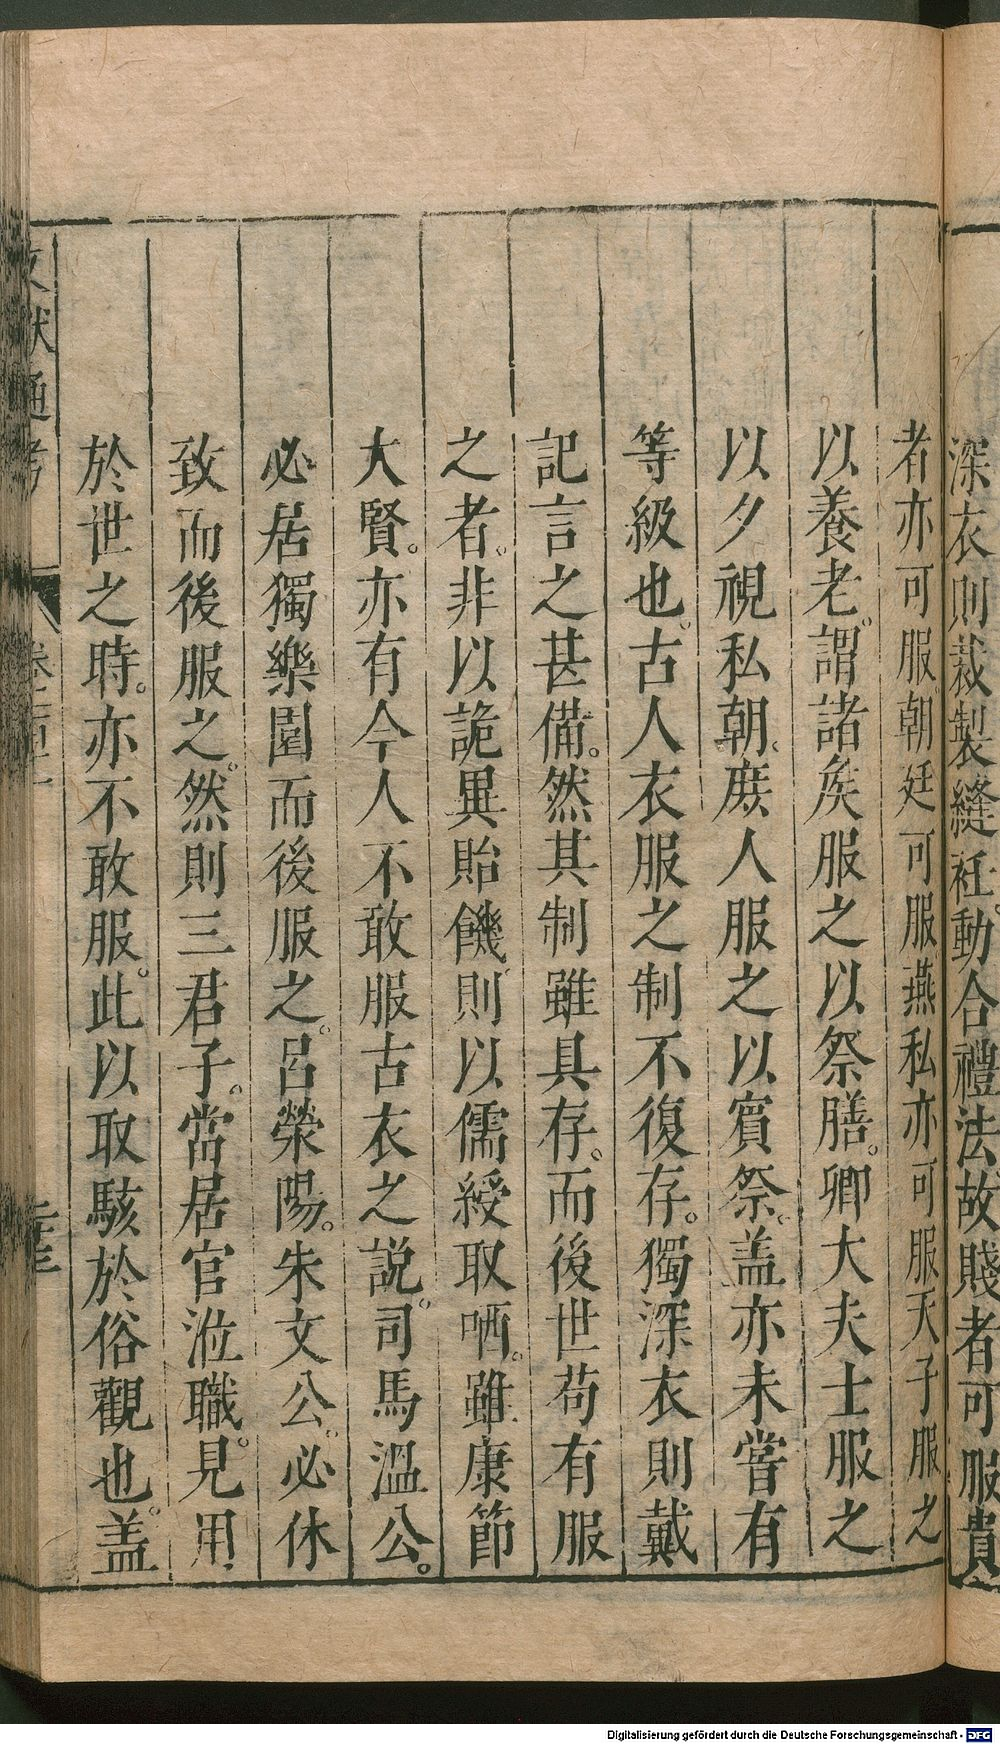 深衣則裁製縫袵動合禮法故賤者可服貴
者亦可服朝廷可服燕私亦可服天子服之
以養老謂諸矦服之以祭膳。卿大夫士服之
以夕視私朝。庻人服之以賓祭。盖亦未嘗有
等級也。古人衣服之制不復存。獨深衣則戴
記言之甚備。然其制雖具存。而後世苟有服
之者。非以詭異貽饑則以儒緩取哂。雖康節
大賢。亦有今人不敢服古衣之説。司馬溫公。
必居獨樂園而後服之。呂滎陽。朱文公。必休
致而後服之。然則三君子。當居官涖職。見用
於世之時。亦不敢服。此以取駭於俗觀也。盖
文獻通考
Digitalisierung gefördert durch die Deutsche Forschungsgemeinschaft - DFG